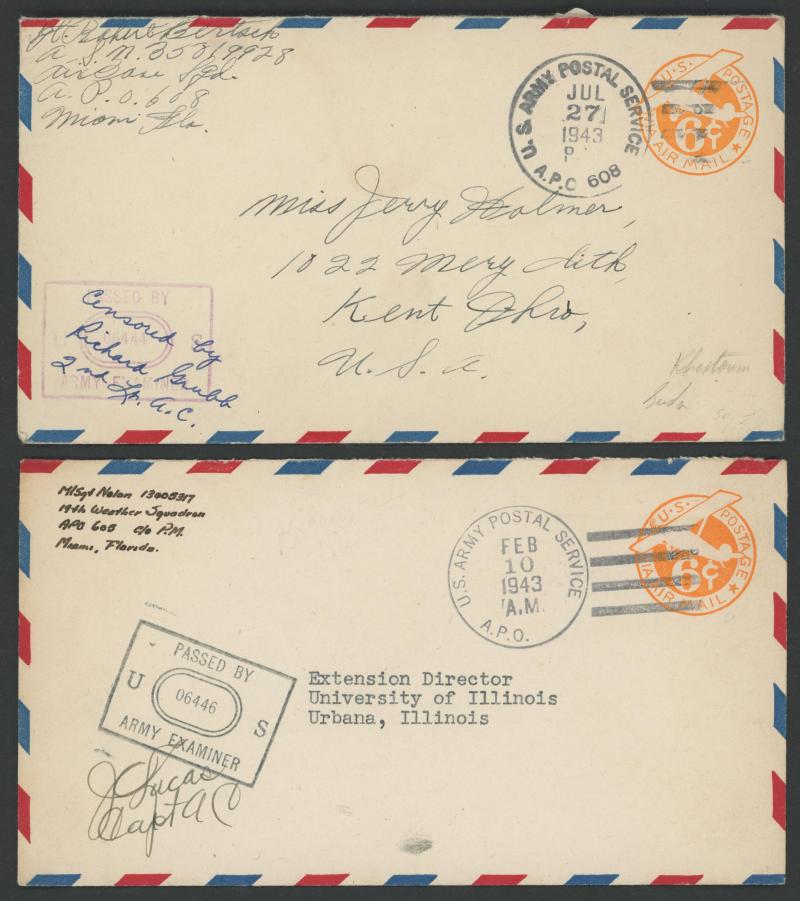 Lt. Robert Bertsch
A.S.N. 35019928
Air Base Sqd.
A.P.O. 608
Miami Fla.
U.S. ARMY POSTAL SERVICE
JUL
27
1943
P
A.P.O 608
U.S. POSTAGE
6¢
VIA AIR MAIL
Miss Jerry Holmer,
1022 Mery dith,
Kent Ohio,
U.S.A.
PASSED BY
U 06444 S
ARMY EXAMINER
Censored by
Richard Grubb
2nd Lt. A.C.
Khartoum
M/Sgt Nolan 13005317
19th Weather Squadron
APO 608 c/o P.M.
Miami, Florida.
U.S. ARMY POSTAL SERVICE
FEB
10
1943
A.M.
A.P.O.
U.S. POSTAGE
6¢
VIA AIR MAIL
PASSED BY
U 06446 S
ARMY EXAMINER
J C Lucas
Capt AC
Extension Director
University of Illinois
Urbana, Illinois